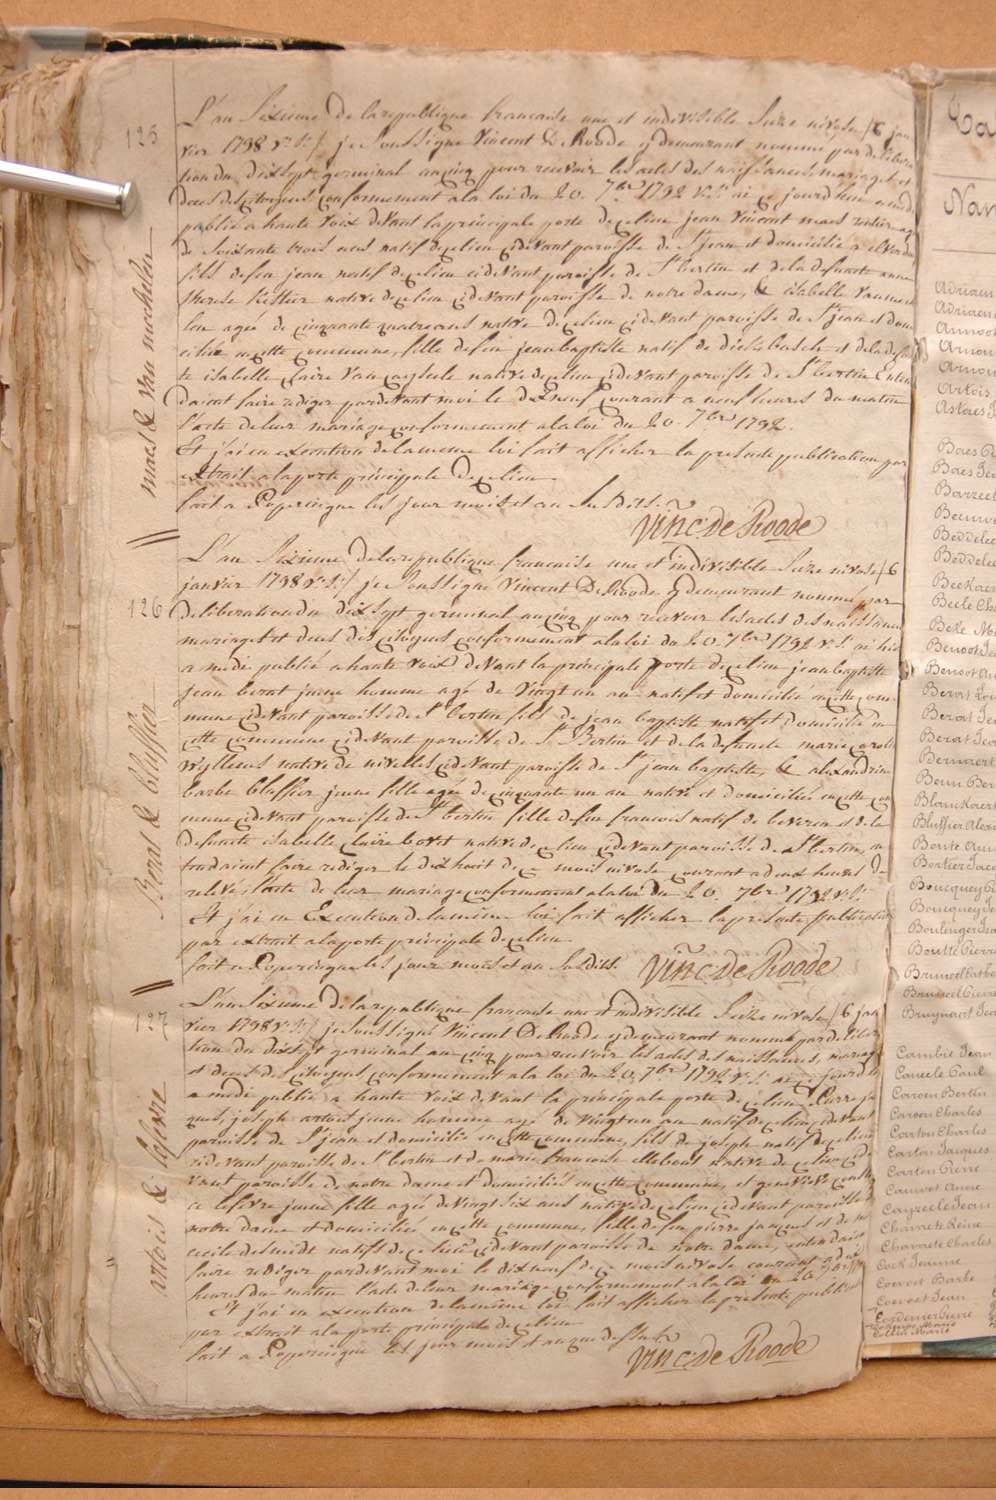 125
maes & van mechelen
L'an Sixieme de la republique francaise une et indivisible Seize nivose /6 jan
vier 1798 v:s:/ je Soussigné Vincent De Roode y demeurant nommé par delibera
tion du dixsept germinal an cinq pour recevoir les actes des naissances, mariages et
deces des citoyens conformement a la loi du 20. 7bre 1792 v:s: ai ce jourd'hui a midi
publié a haute voix devant la principale porte de ce lieu jean Vincent maes rentier agé
de Soixante trois ans natif de ce lieu cidevant paroisse de St jean et domicilié a
fils de feu jean natif de ce lieu cidevant paroisse de St bertin et de la defunte anne
therese Kestier native de ce lieu cidevant paroisse de notre dame, & isabelle van meche
len agée de cinquante quatre ans native de ce lieu cidevant paroisse de St jean et domi
ciliée en cette commune, fille de feu jean baptiste natif de dickebusch et de la defun
te isabelle claire van cayseele native de ce lieu cidevant paroisse de St bertin Enten
daient faire rediger pardevant moi le dixneuf courant a neuf heures du matin
l'acte de leur mariage conformement a la loi du 20. 7bre 1792.
Et j'ai en execution de la meme loi fait afficher la presente publication par
extrait a la porte principale de ce lieu
fait a Poperingue les jour mois et an Susdits.
Vinc: De Roode
126
Berat & bluffier
L'an Sixieme de la republique francaise une et indivisible Seize nivose /6
janvier 1798 v:s:/ je Soussigné Vincent De Roode y demeurant nommé par
deliberation du dixsept germinal an cinq pour recevoir les actes des naissances
mariages et deces des citoyens conformement a la loi du 20. 7bre 1792 v:s: ai
a midi publié a haute voix devant la principale porte de ce lieu jean baptiste
jean berat jeune homme agé de vingt un an natif et domicilié en cette com
mune cidevant paroisse de St bertin fils de jean baptiste natif et domicilié en
cette commune cidevant paroisse de St Bertin et de la defunte marie carol
wyllems native de nivelles cidevant paroisse de St jean baptiste, & alexandrine
barbe bluffier jeune fille agée de cinquante un an native et domiciliée en cette com
mune cidevant paroisse de St bertin fille de feu francois natif de beveren et de la
defunte isabelle claire boret native de ce lieu cidevant paroisse de St bertin, en
tendaient faire rediger le dix huit de ce mois nivose courant a deux heures de
relevée l'acte de leur mariage conformement a la loi du 20. 7bre 1792 v:s:
Et j'ai en Execution de la même loi fait afficher la presente publication
par extrait a la porte principale de ce lieu
fait a Poperingue les jour mois et an Susdits.
Vinc: De Roode
127
artois & lefevre
L'an Sixieme de la republique francaise une et indivisible Seize nivose /6 jan
vier 1798 v:s:/ je Soussigné Vincent De Roode y demeurant nommé par delibera
tion du dixsept germinal an cinq pour recevoir les actes des naissances, mariages
et deces des citoyens conformement a la loi du 20. 7bre 1792 v:s: ai ce jourd'hui
a midi publié a haute voix devant la principale porte de ce lieu Pierre ja
ques, joseph artois jeune homme agé de vingt un an natif de ce lieu, cidevant
paroisse de St jean et domicilié en cette commune, fils de joseph natif de ce lieu
cidevant paroisse de St bertin et de marie francoise ellebout native de ce lieu cide
vant paroisse de notre dame et domiciliés en cette commune, et genevieve constan
ce lefevre jeune fille agée de vingt six ans native de ce lieu cidevant paroisse de
notre dame et domiciliée en cette commune, fille de feu pierre jacques et de
cecile desmidt natifs de ce lieu cidevant paroisse de notre dame, entendaient
faire rediger pardevant moi le dix neuf de ce mois nivose courant a dix
heures du matin l'acte de leur mariage conformement a la loi du 20 7bre
Et j'ai en execution de la même loi fait afficher la presente public
par extrait a la porte principale de ce lieu
fait a Poperingue les jour mois et an que dessus
Vinc: De Roode
Ta
Nam
Adriaen
Adriaen
Annoot
Arnou
Arnou
Artois
Astaes J
Baes P
Baes Je
Barzeel
Beauve
Beddelee
Beddelee
Beekaer
Beele Cha
Beke Ma
Benoot Je
Benoot An
Berat Lou
Berat Jea
Berat Jea
Bernaert
Beun Ber
Blanckaert
Bluffier Alexa
Bonte Ann
Bortier Jaco
Boucquey P
Boucquey J
Boulenger Jo
Boutte Pierre
Bruneel Catha
Bruneel Pierre
Bruynaert Jea
Cambie Jean
Caneele Paul
Caroen Bertin
Caroen Charles
Carton Charles
Carton Jacques
Carton Pierre
Cauwet Anne
Cayzeele Jean
Chavaete Reine
Chavaete Charles
Cock Jeanne
Coevoet Barbe
Coevoet Jean
Cordenier Pierre